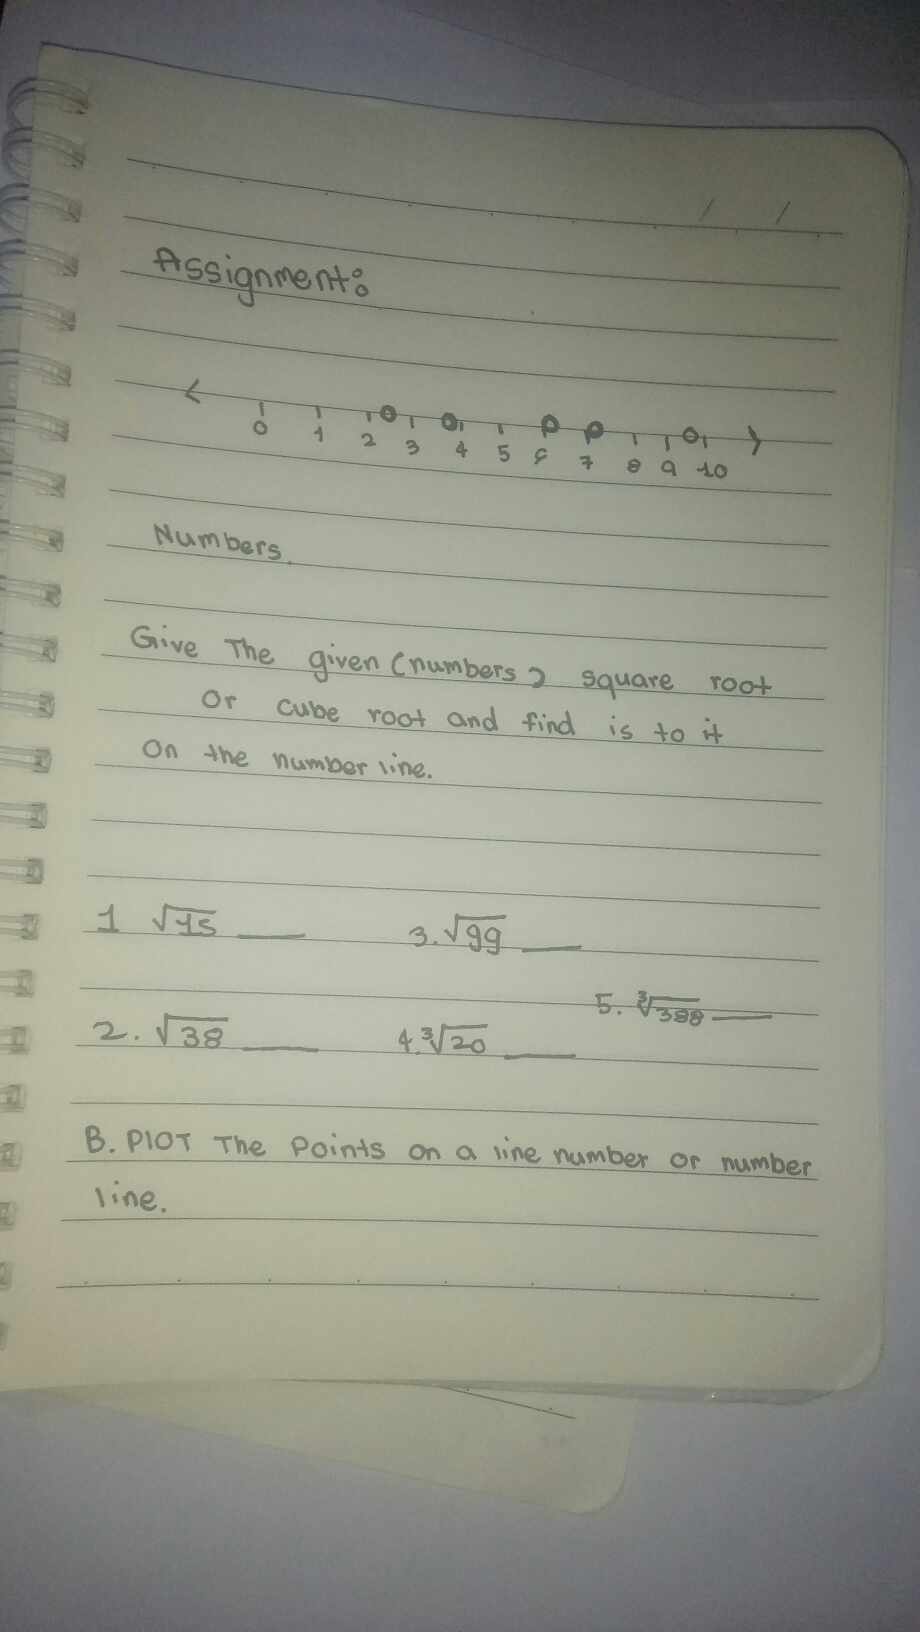 / /
Assignment:
0 1 2 3 4 5 6 7 8 9 10
Numbers.
Give The given (numbers) square root
or cube root and find is to it
on the number line.
1 √15 ___ 3. √99 ___
5. ³√388 ___
2. √38 ___ 4. ³√20 ___
B. PlOT The Points on a line number or number
line.